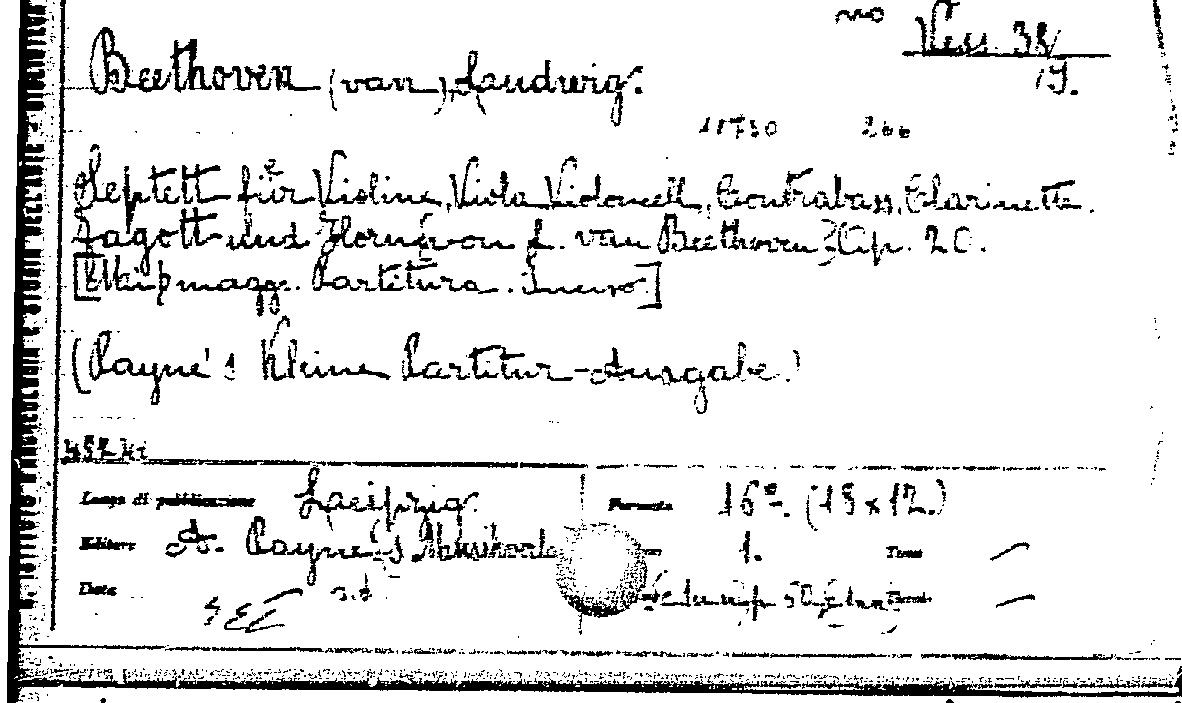 no Vess. 38/
19.
Beethoven (van), Laudwig.
11730 266
Septett für Violine, Viola, Violoncell, Contrabass, Clarinette.
Fagott und Horn (von L. van Beethoven) Op. 20.
magg. Partitura. Intero.]
(Payne's Kleine Partitur-Ausgabe.)
Luogo di pubblicazione Leipzig. Formato 16º. (19x12.)
Editore A. Payne's 1. Tomi
Data s.d.